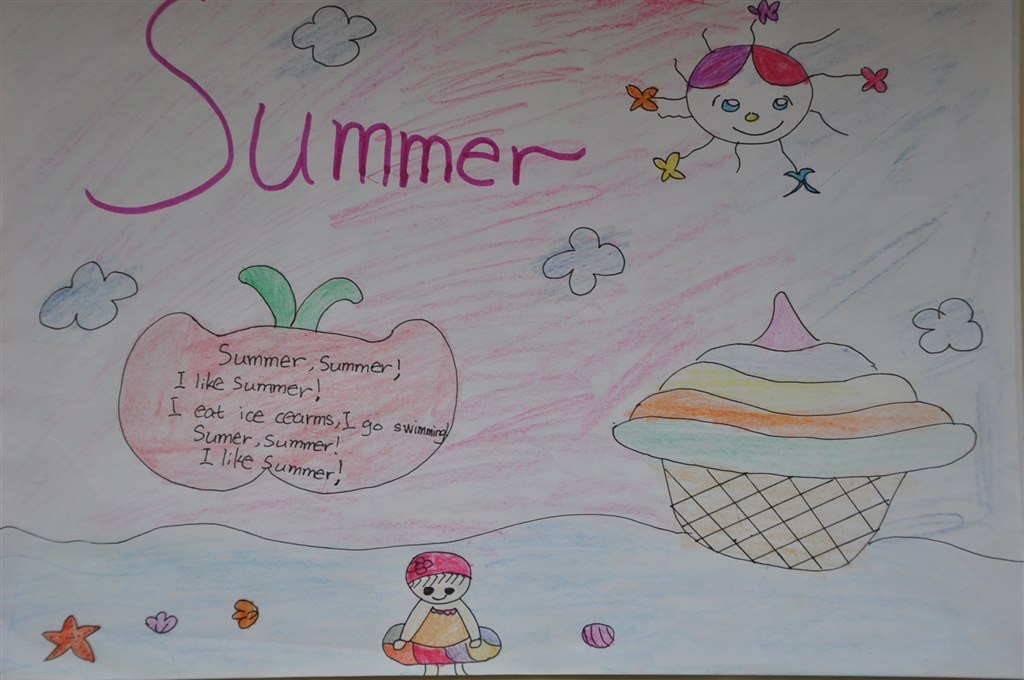 Summer
Summer, Summer!
I like Summer!
I eat ice cearms, I go swimming!
Sumer, Summer!
I like Summer!